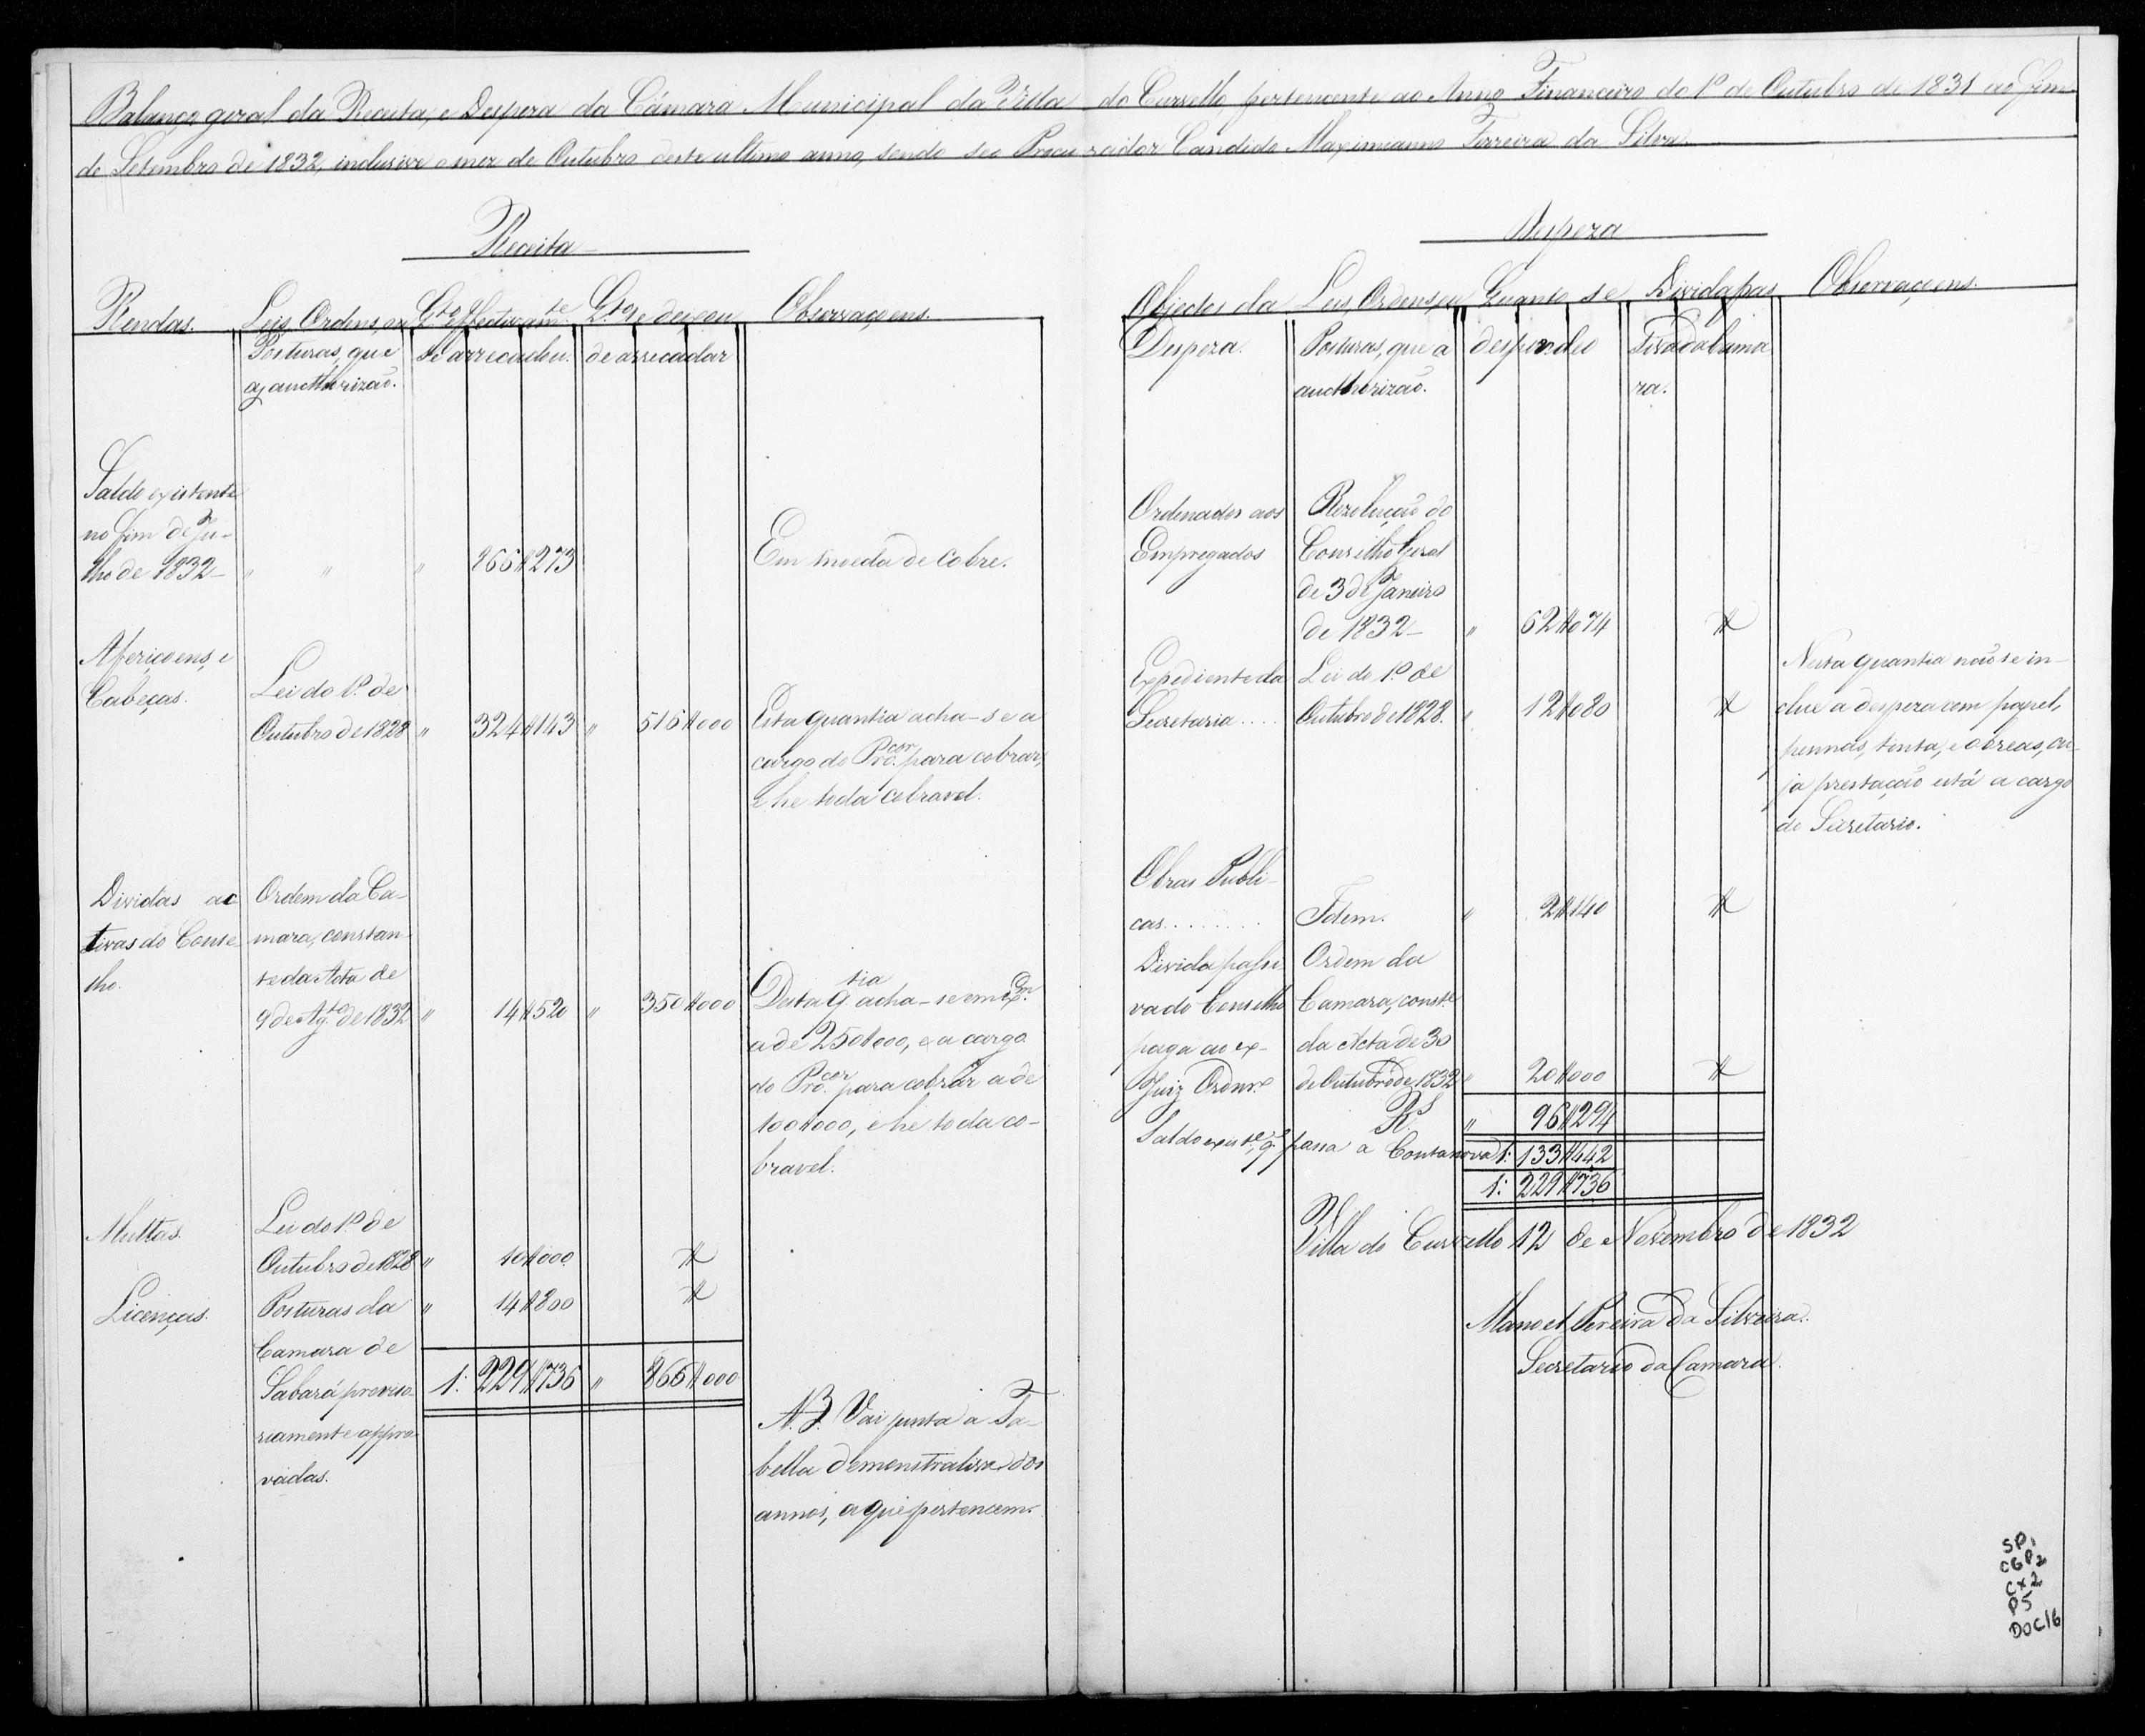 Balanço geral da Receita, e Despeza da Câmara Municipal da Villa do Curvello, pertencente ao Anno Financeiro do 1º de Outubro de 1831 ao fim
de Setembro de 1832, inclusive o mez de Outubro deste ultimo anno, sendo seo Procurador Candido Maximianno Ferreira da Silva.
Receita
Rendas.
Leis, Ordens, ou
Posturas, que
as aucthorizaõ.
Qto effectivamte
se arrecadou.
Qto se deixou
de arrecadar
Observaçoens.
Saldo existente
no fim de Ju-
lho de 1832 " " " 866$273 Em moeda de cobre.
Afericoens, e
Cabeças.
Lei do 1º de
Outubro de 1828 " 324$143 " 516$000 Esta quantia acha-se a
cargo do Procor para cobrar,
e he toda cobravel.
Dividas ac
tivas do Conse
lho.
Ordem da Ca-
mara, constan
te da Acta de
9 de Agto de 1832 " 14$520 " 350$000 Desta qtia acha-se em exm
a de 250$000, e a cargo
do Procor para cobrar a de
100$000, e he toda co-
bravel.
Multas.
Lei do 1º de
Outubro de 1828 " 10$000 $
Licenças. Posturas da " 14$800 $
Camara de
Sabará proviso-
riamente appro-
vadas.
1: 229$736 " 866$000
N.B. Vai junta a Ta-
bella demonstrativa dos
annos, a que pertencem.
Despeza
Objectos da
Despeza.
Leis, Ordens, ou
Posturas, que a
aucthorizaõ.
Quanto se
despendeo
Divida pas
siva da Cama
ra.
Observaçoens.
Ordenados aos
Empregados
Rezoluçaõ do
Conselho Geral
de 3 de Janeiro
de 1832 " 62$074 $
Expediente da
Secretaria....
Lei do 1º de
Outubro de 1828. " 12$080 $
Nesta quantia naõ se in-
clue a despeza com papel,
pennas, tinta, e obreas, cu-
ja prestaçaõ está a cargo
do Secretario.
Obras Publi-
cas........ Idem. " 2$140 $
Divida passi-
va do Conselho
paga ao ex-
Juiz Ordinro
Ordem da
Camara, conste
da Acta de 30
de Outubro de 1832 " 20$000 $
Rs " 96$294
Saldo existe, qe passa a Conta nova 1: 133$442
1: 229$736
Villa do Curvello 12 de Novembro de 1832
Manoel Pereira da Silveira.
Secretario da Camara.
SP1
CGP2
Cx2
P5
DOC16